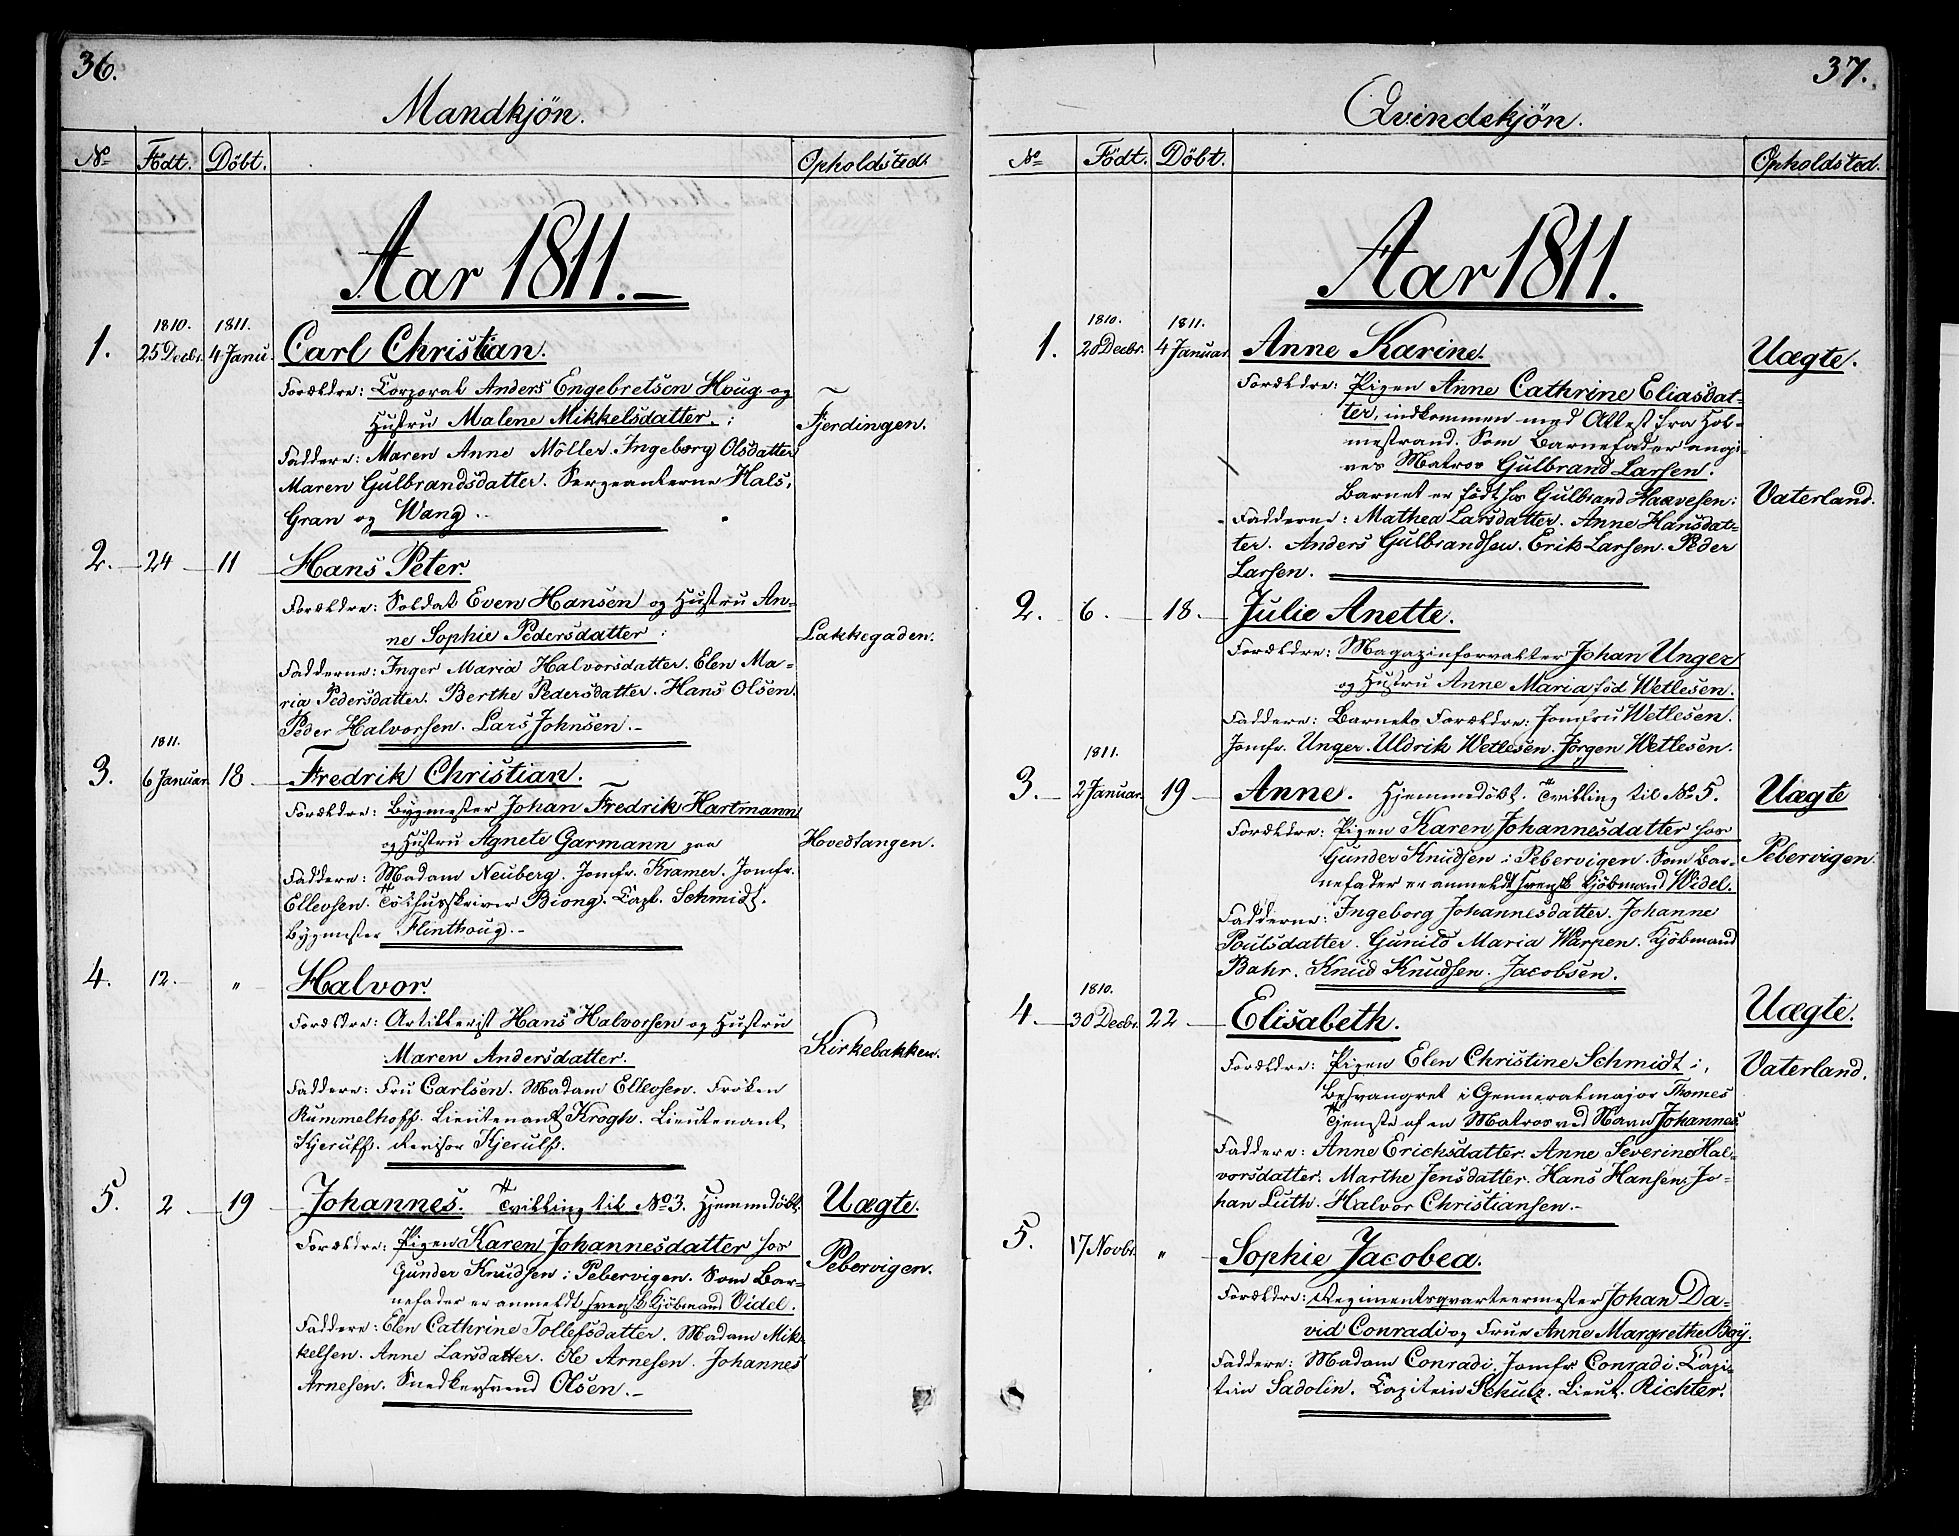 36.
Mandkjön.
No Födt. Döbt. Opholdsted.
Aar 1811.
1810. 1811.
1. 25 Decbr. 4 Janu. Carl Christian.
Forældre: Corporal Anders Engebretsen Houg og
Hustru Malene Mikkelsdatter. :
Fjerdingen.
Faddere: Maren Anne Möller. Ingeborg Olsdatter
Maren Gulbrandsdatter. Sergeanterne Hals,
Gran og Wang.
2. 24 11 Hans Peter.
Forældre: Soldat Even Hansen og Hustru An-
ne Sophie Pedersdatter :
Lakkegaden.
Fadderne: Inger Maria Halvorsdatter. Elen Ma-
ria Pedersdatter. Berthe Pedersdatter. Hans Olsen.
Peder Halvorsen. Lars Johnsen.
1811.
3. 6 Januar. 18 Fredrik Christian.
Forældre: Bygmester Johan Fredrik Hartmann
og Hustru Agnete Garmann paa
Hovedtangen.
Faddere: Madam Neuberg. Jomfr. Kramer. Jomfr.
Ellevsen. Töihusskriver Biong. Capt. Schmidt.
Bygmester Flinthoug.
4. 12. " Halvor.
Forældre: Artillerist Hans Halvorsen og Hustru
Maren Andersdatter.
Kirkebakken.
Faddere: Fru Carlsen. Madam Ellevsen. Fröken
Rummelhoff. Lieutenant Krogh. Lieutenant
Kjerulf. Revisor Kjerulf.
5. 2 19 Johannes. Tvilling til No 3. Hjemmedöbt. Uægte.
Forældre: Pigen Karen Johannesdatter hos
Gunder Knudsen i Pebervigen. Som Bar-
Pebervigen.
nefader er anmeldt svensk Kjöbmand Videl.
Faddere: Elen Cathrine Tollefsdatter. Madam Mik-
kelsen. Anne Larsdatter. Ole Arnesen. Johannes
Arnesen. Snedkersvend Olsen.
37.
Qvindekjön.
No Födt. Döbt. Opholdsted.
Aar 1811.
1810. 1811.
1. 28 Decbr. 4 Januar. Anne Karine. Uægte.
Forældre: Pigen Anne Cathrine Eliasdat-
ter, indkommen med Attest fra Hol-
mestrand. Som Barnefader angi-
ves Matros Gulbrand Larsen.
Barnet er födt hos Gulbrand Haavesen: Vaterland.
Fadderne: Mathea Larsdatter. Anne Hansdat-
ter. Anders Gulbrandsen. Erik Larsen. Peder
Larsen.
2. 6. 18. Julie Anette.
Forældre: Magazinforvalter Johan Unger
og Hustru Anne Maria föd Wetlesen.
Faddere: Barnets Forældre: Jomfru Wetlesen.
Jomfr. Unger. Uldrik Wetlesen. Jörgen Wetlesen.
1811.
3. 2 Januar. 19 Anne. Hjemmedöbt. Tvilling til No 5. Uægte
Forældre: Pigen Karen Johannesdatter hos
Gunder Knudsen i Pebervigen. Som Bar- Pebervigen.
nefader er anmeldt svensk Kjöbmand Widel.
Fadderne: Ingeborg Johannesdatter. Johanne
Poulsdatter. Gunild Maria Warpen. Kjöbmand
Bahr. Knud Knudsen. Jacobsen.
1810.
4. 30 Decbr. 22 Elisabeth. Uægte.
Forældre: Pigen Elen Christine Schmidt :, Vaterland.
Besvangret i Genneralmajor Thomes
Tjenste af en Matros ved Navn Johannes.
Faddere: Anne Erichsdatter. Anne Severine Hal-
vorsdatter. Marthe Jensdatter. Hans Hansen. Jo-
han Luth. Halvor Christiansen.
5. 17 Novbr. " Sophie Jacobea.
Forældre: Regimentsqvarteermester Johan Da-
vid Conradi og Frue Anne Margrethe Baÿ.
Faddere: Madam Conradi. Jomfr Conradi. Capi-
tein Sadolin. Capitein Schulz. Lieut. Richter.